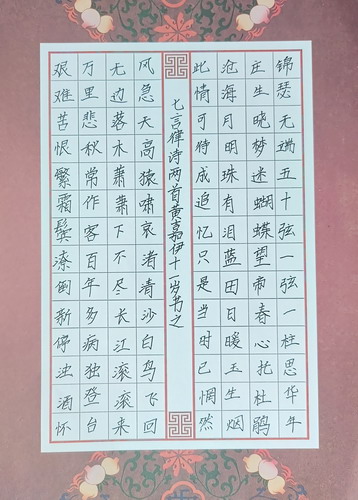 锦瑟无端五十弦一弦一柱思华年
庄生晓梦迷蝴蝶望帝春心托杜鹃
沧海月明珠有泪蓝田日暖玉生烟
此情可待成追忆只是当时已惘然
七言律诗两首黄嘉伊十一岁书之
风急天高猿啸哀渚清沙白鸟飞回
无边落木萧萧下不尽长江滚滚来
万里悲秋常作客百年多病独登台
艰难苦恨繁霜鬓潦倒新停浊酒杯